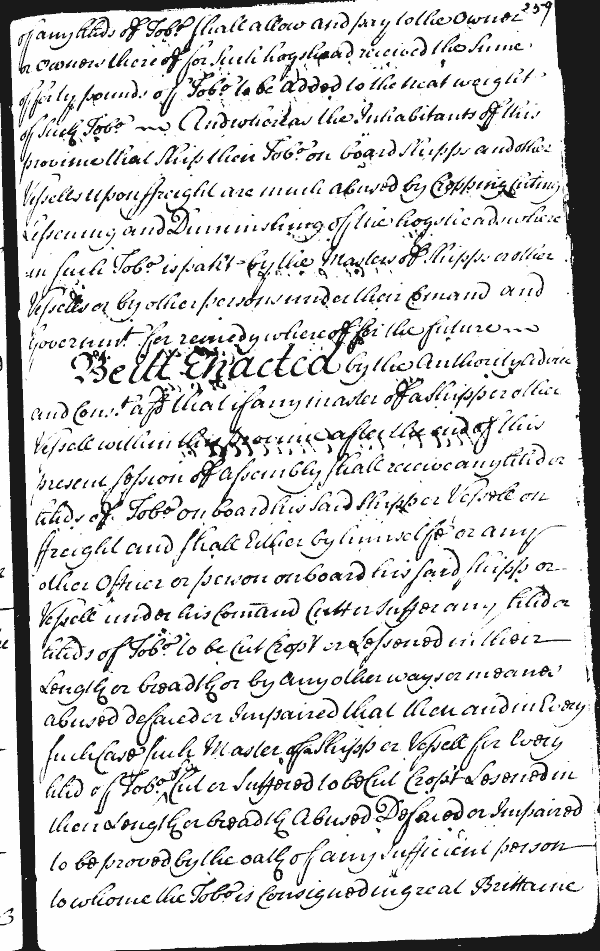 259
of any hhds of Tobo shall allow and pay to the Owner
or owners thereof for Such hogshead received the Sume
of forty pounds of Tobo to be added to the neat weight
of such Tobo And whereas the Inhabitants of this
province that Ship their Tobo on board Shipps and other
Vessells upon ffreight are much abused by Cropping Cuting
Lessening and Diminishing of the hogsheads where
in such Tobo is pakt by the Masters of Shipps or other
Vessells or by other persons under their Comand and
Governmt for remedy whereof for the future
Be itt Enacted by the Authority Advice
and Const afsd that if any master of a Shipp or other
Vessell within this province after the end of this
present Session of Assembly shall receive any hhd or
hhds of Tobo on board his said Shipp or Vessell on
ffreight and shall Either by himselfe or any
other Officer or person on board his said shipp or
Vessell under his Comand Cutt or Suffer any hhd or
hhds of Tobo to be Cut Cropt or Lessened in their
Length or breadth or by any other ways or meanes
abused defaced or Impaired that then and in Every
such Case such Master of a Shipp or Vessell for Every
hhd of Tobo so Cut or Suffered to be Cut Cropt Lesened in
their Length or breadth Abused Defaced or Impaired
to be proved by the oath of any Sufficient person
to whome the Tobo is Consigned in great Brittaine